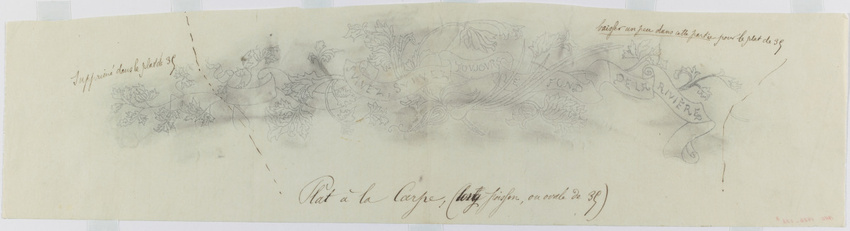 Supprimé dans le plat de 35
baisser un peu dans cette partie pour le plat de 35
TOUJOURS
FOND
DE LA
RIVIERE
Plat à la Carpe, (long poisson, ou ovale de 35)